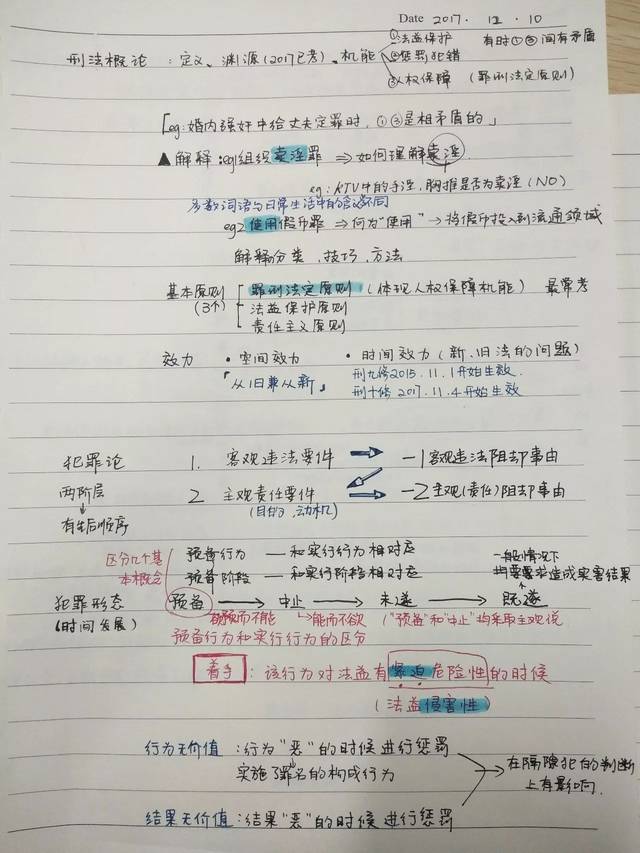 Date 2017. 12. 10
刑法概论：定义、渊源(2017已考)、机能
①法益保护
②惩罚犯错
③人权保障（罪刑法定原则）
有时①③间有矛盾
「eg:婚内强奸中给丈夫定罪时，①③是相矛盾的」
▲解释：eg1组织卖淫罪 ⇒如何理解卖淫.
eg：KTV中的手淫，胸推是否为卖淫（NO）
多数词语与日常生活中的含义不同
eg2 使用假币罪 ⇒何为“使用”→将假币投入到流通领域
解释分类、技巧、方法
基本原则（3个）
罪刑法定原则（体现人权保障机能） 最常考
法益保护原则
责任主义原则
效力 ·空间效力 ·时间效力（新、旧法的问题）
「从旧兼从新」 刑九修2015.11.1开始生效.
刑十修 2017.11.4开始生效
犯罪论 1. 客观违法要件 → —1客观违法阻却事由
两阶层 2 主观责任要件 → —2主观(责任)阻却事由
(目的、动机)
→有先后顺序
区分几个基本概念
预备行为 —和实行行为相对应
预备阶段 —和实行阶段相对应
一般情况下
均要求造成实害结果
犯罪形态 预备 → 中止 → 未遂 → 既遂
(时间发展) 欲而不能 能而不欲 （“预备”和“中止”均采取主观说
预备行为和实行行为的区分
着手：该行为对法益有紧迫危险性的时候
（法益侵害性）
行为无价值：行为“恶”的时候进行惩罚
实施了罪名的构成行为
在隔隙犯的判断上有影响.
结果无价值：结果“恶”的时候进行惩罚